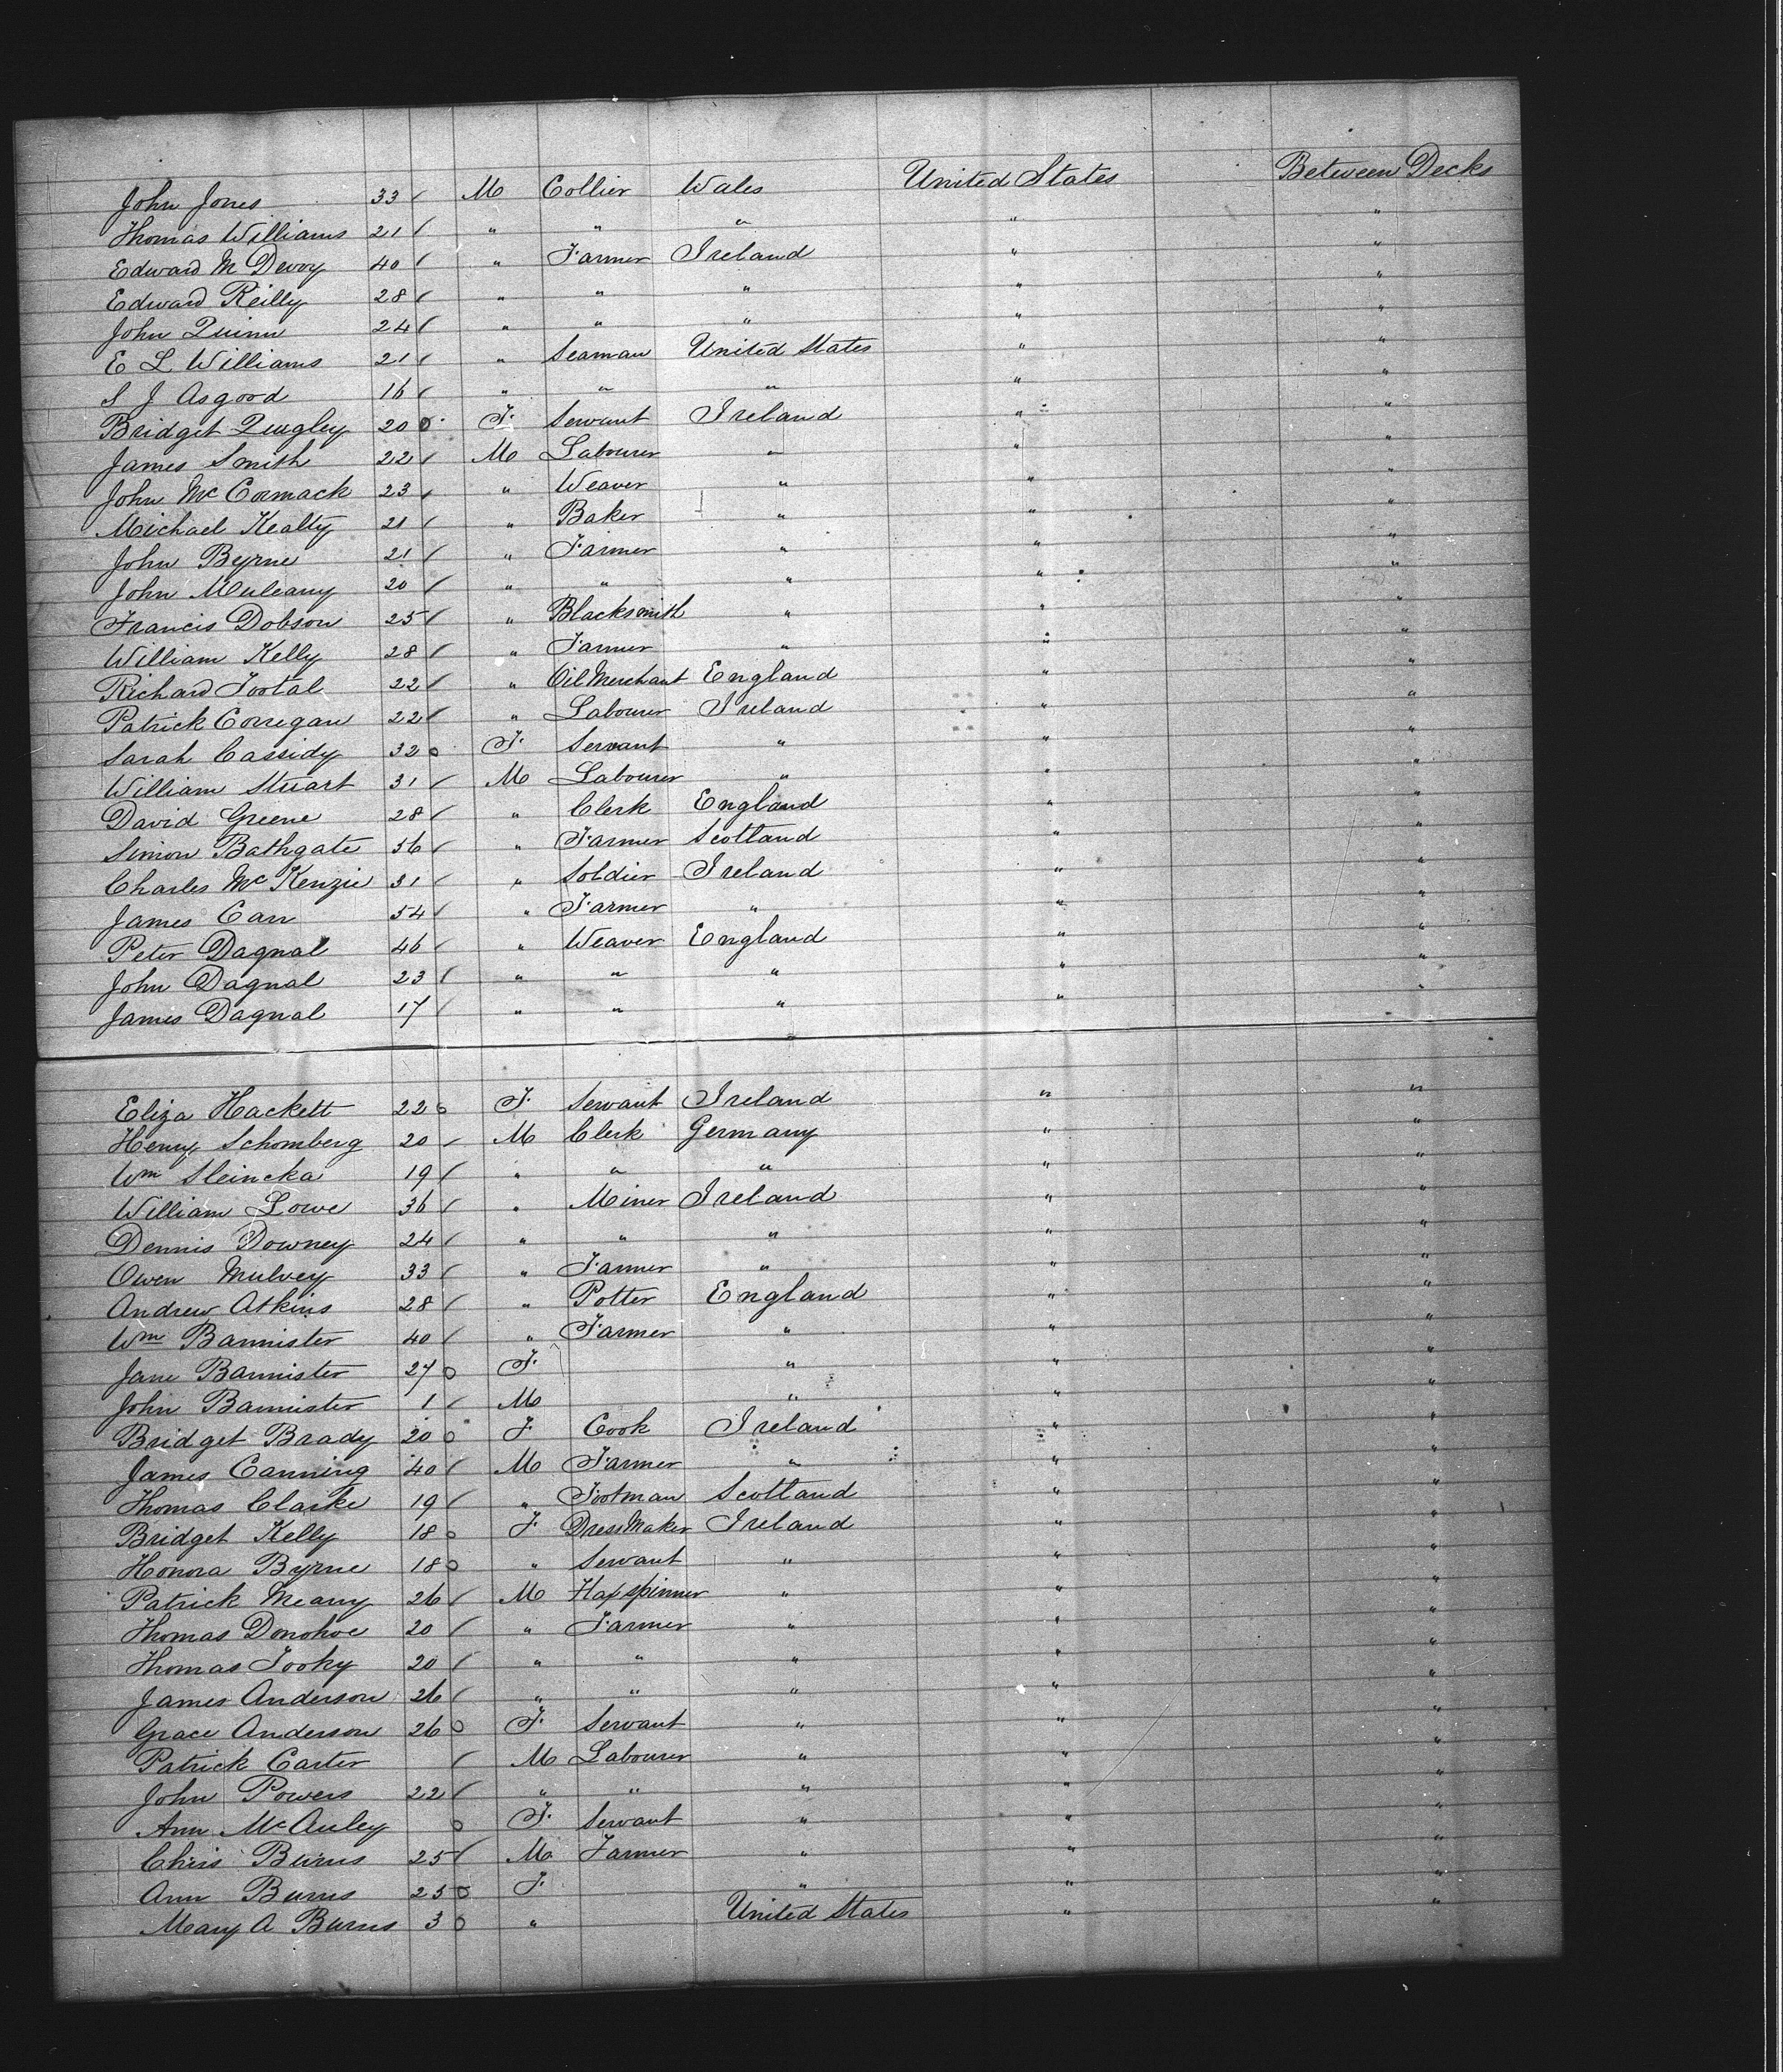 John Jones 33 M Collier Wales United States Between Decks
Thomas Williams 21 " " " " "
Edward McDevoy 40 " Farmer Ireland " "
Edward Reilly 28 " " " " "
John Quinn 24 " " " " "
E L Williams 21 " Seaman United States " "
S J Asgood 16 " " " " "
Bridget Quigley 20 F. Servant Ireland " "
James Smith 22 M Labourer " " "
John McCormack 23 " Weaver " " "
Michael Kealty 21 " Baker " " "
John Byrne 21 " Farmer " " "
John Muleany 20 " " " " "
Francis Dobson 25 " Blacksmith " " "
William Kelly 28 " Farmer " " "
Richard Tootal 22 " Oil Merchant England " "
Patrick Corregan 22 " Labourer Ireland " "
Sarah Cassidy 32 F. Servant " " "
William Stuart 31 M Labourer " " "
David Greene 28 " Clerk England " "
Simon Bathgate 56 " Farmer Scotland " "
Charles McKenzie 31 " Soldier Ireland " "
James Carr 54 " Farmer " " "
Peter Dagnal 46 " Weaver England " "
John Dagnal 23 " " " " "
James Dagnal 17 " " " " "
Eliza Hackett 22 F. Servant Ireland " "
Henry Schomberg 20 M Clerk Germany " "
Wm Sleincka 19 " " " " "
William Lowe 36 " Miner Ireland " "
Dennis Downey 24 " " " " "
Owen Mulvey 33 " Farmer " " "
Andrew Atkins 28 " Potter England " "
Wm Bannister 40 " Farmer " " "
Jane Bannister 27 F. " " "
John Bannister 1 M " " "
Bridget Brady 20 F. Cook Ireland " "
James Canning 40 M Farmer " " "
Thomas Clarke 19 " Footman Scotland " "
Bridget Kelly 18 F. DressMaker Ireland " "
Honora Byrne 18 " Servant " " "
Patrick Meany 26 M Flaxspinner " " "
Thomas Donohoe 20 " Farmer " " "
Thomas Tooky 20 " " " " "
James Anderson 26 " " " " "
Grace Anderson 26 F. Servant " " "
Patrick Carter M Labourer " " "
John Powers 22 " " " " "
Ann McAuley F. Servant " " "
Chris Burns 25 M Farmer " " "
Ann Burns 25 F. " " "
Mary A Burns 3 " United States " "